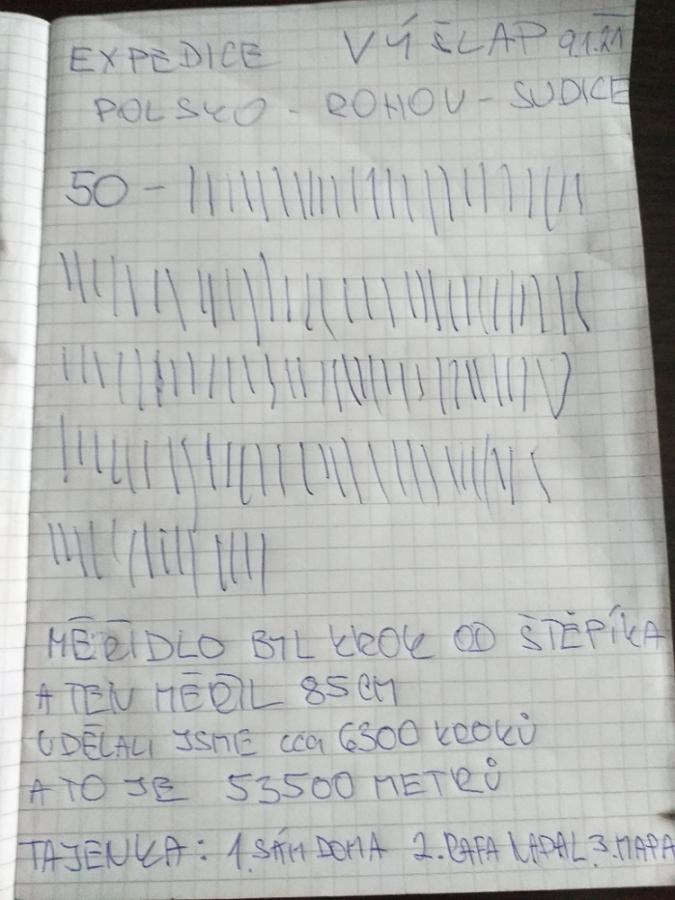 EXPEDICE VÝŠLAP 9.1.21
POLSKO - ROHOV - SUDICE
50 -
MĚŘIDLO BYL KROK OD ŠTĚPÍKA
A TEN MĚŘIL 85 CM
UDĚLALI JSME cca 6300 KROKŮ
A TO JE 53500 METRŮ
TAJENKA: 1. SÁM DOMA 2. RAFA NADAL 3. MAPA